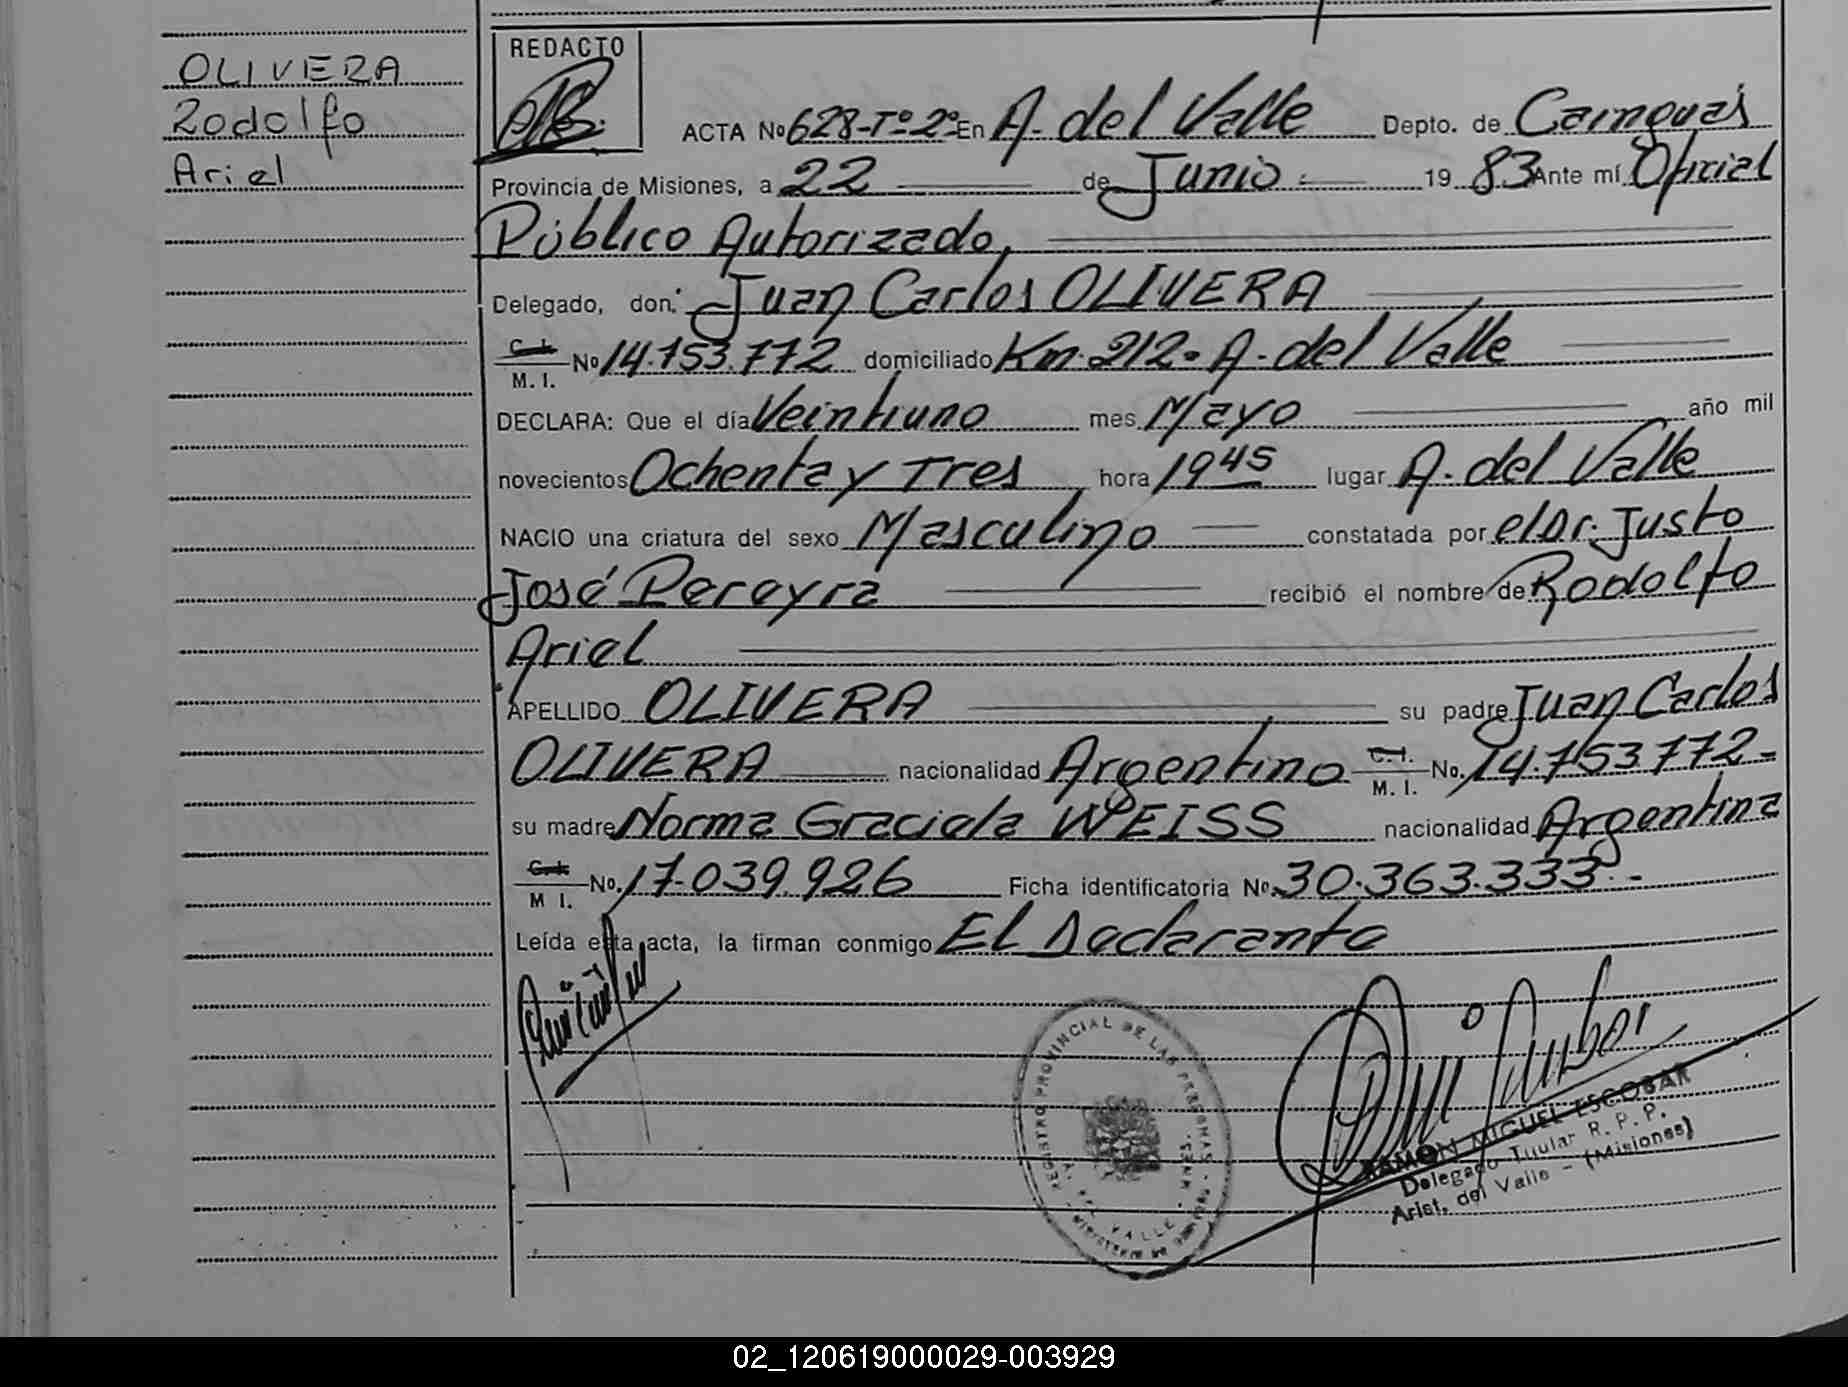 OLIVERA
Rodolfo
Ariel
REDACTO
ACTA No 628-Tº-2º En A. del Valle Depto. de Cainguas
Provincia de Misiones, a 22 de Junio 1983 Ante mí Oficial
Público Autorizado,
Delegado, don: Juan Carlos OLIVERA
C. I. M. I. No 14.753.772 domiciliado Km. 212. A. del Valle
DECLARA: Que el día Veintiuno mes Mayo año mil
novecientos Ochenta y Tres hora 19 45 lugar A. del Valle
NACIO una criatura del sexo Masculino constatada por el Dr. Justo
José Pereyra recibió el nombre de Rodolfo
Ariel
APELLIDO OLIVERA su padre Juan Carlos
OLIVERA nacionalidad Argentino C. I. M. I. No. 14.753.772-
su madre Norma Graciela WEISS nacionalidad Argentina
C. I. M I. No. 17.039.926 Ficha identificatoria No. 30.363.333.-
Leída esta acta, la firman conmigo El Declarante
REGISTRO PROVINCIAL DE LAS PERSONAS
DEL VALLE
RAMON MIGUEL ESCOBAR
Delegado Titular R. P. P.
Arist. del Valle - (Misiones)
02_120619000029-003929